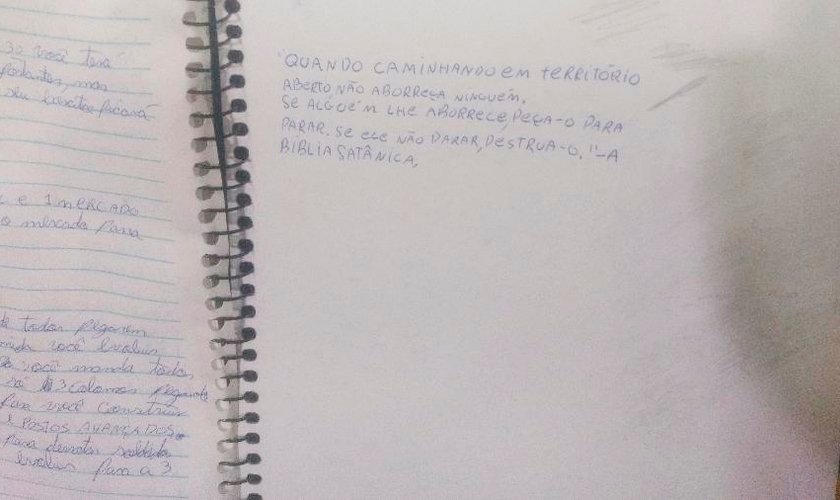 30 você terá
portantes, mas
seu exército ficará
e 1 mercado
o mercado para
de todos pegarem
você evoluir
você manda todos
3 colonos
para você construir
POSTOS AVANÇADOS
para derrotar
evoluir para a 3
"QUANDO CAMINHANDO EM TERRITÓRIO
ABERTO NÃO ABORREÇA NINGUÉM.
SE ALGUÉM LHE ABORRECE, PEÇA-O PARA
PARAR. SE ELE NÃO PARAR, DESTRUA-O." -A
BÍBLIA SATÂNICA.